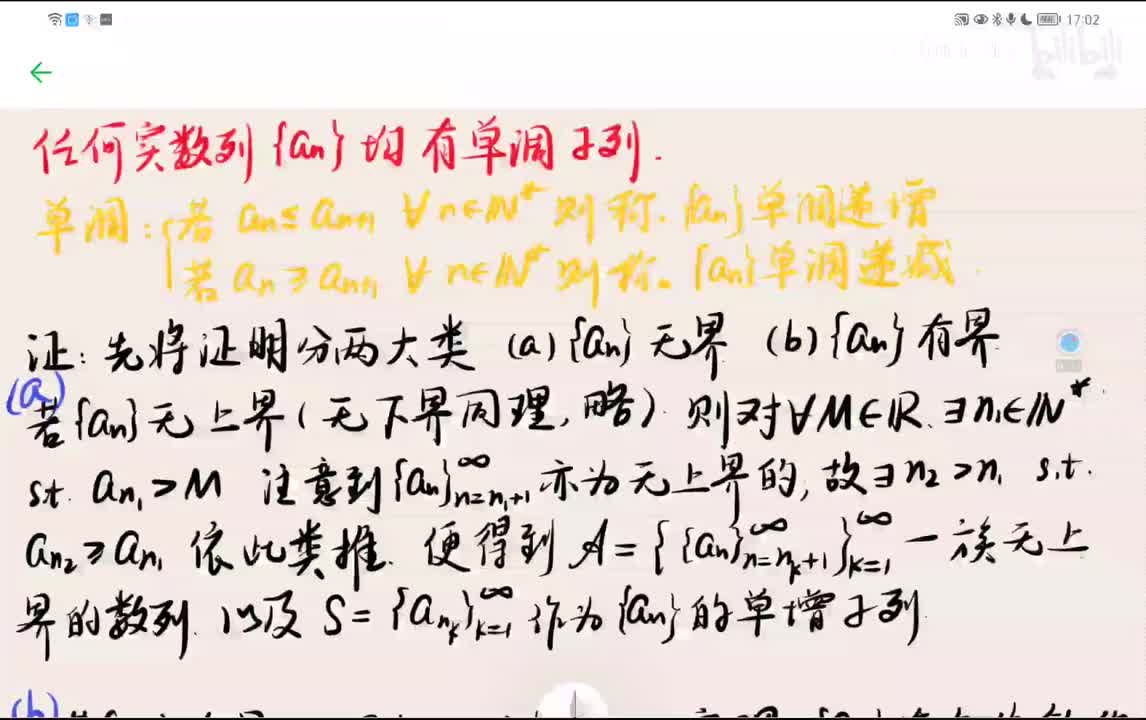 17:02
bilibili
任何实数列{aₙ}均有单调子列.
单调:{若 aₙ≤aₙ₊₁ ∀n∈ℕ* 则称.{aₙ}单调递增
若 aₙ≥aₙ₊₁ ∀n∈ℕ* 则称.{aₙ}单调递减.
证:先将证明分两大类 (a){aₙ}无界 (b){aₙ}有界
(a)
若{aₙ}无上界(无下界同理,略).则对∀M∈ℝ.∃n₁∈ℕ*.
s.t. aₙ₁>M 注意到{aₙ}_{n=n₁+1}^∞ 亦为无上界的,故∃n₂>n₁ s.t.
aₙ₂≥aₙ₁ 依此类推.便得到 A={{aₙ}_{n=n_k+1}^∞}_{k=1}^∞ 一族无上
界的数列.以及 S={a_{n_k}}_{k=1}^∞ 作为{aₙ}的单增子列.
(b)